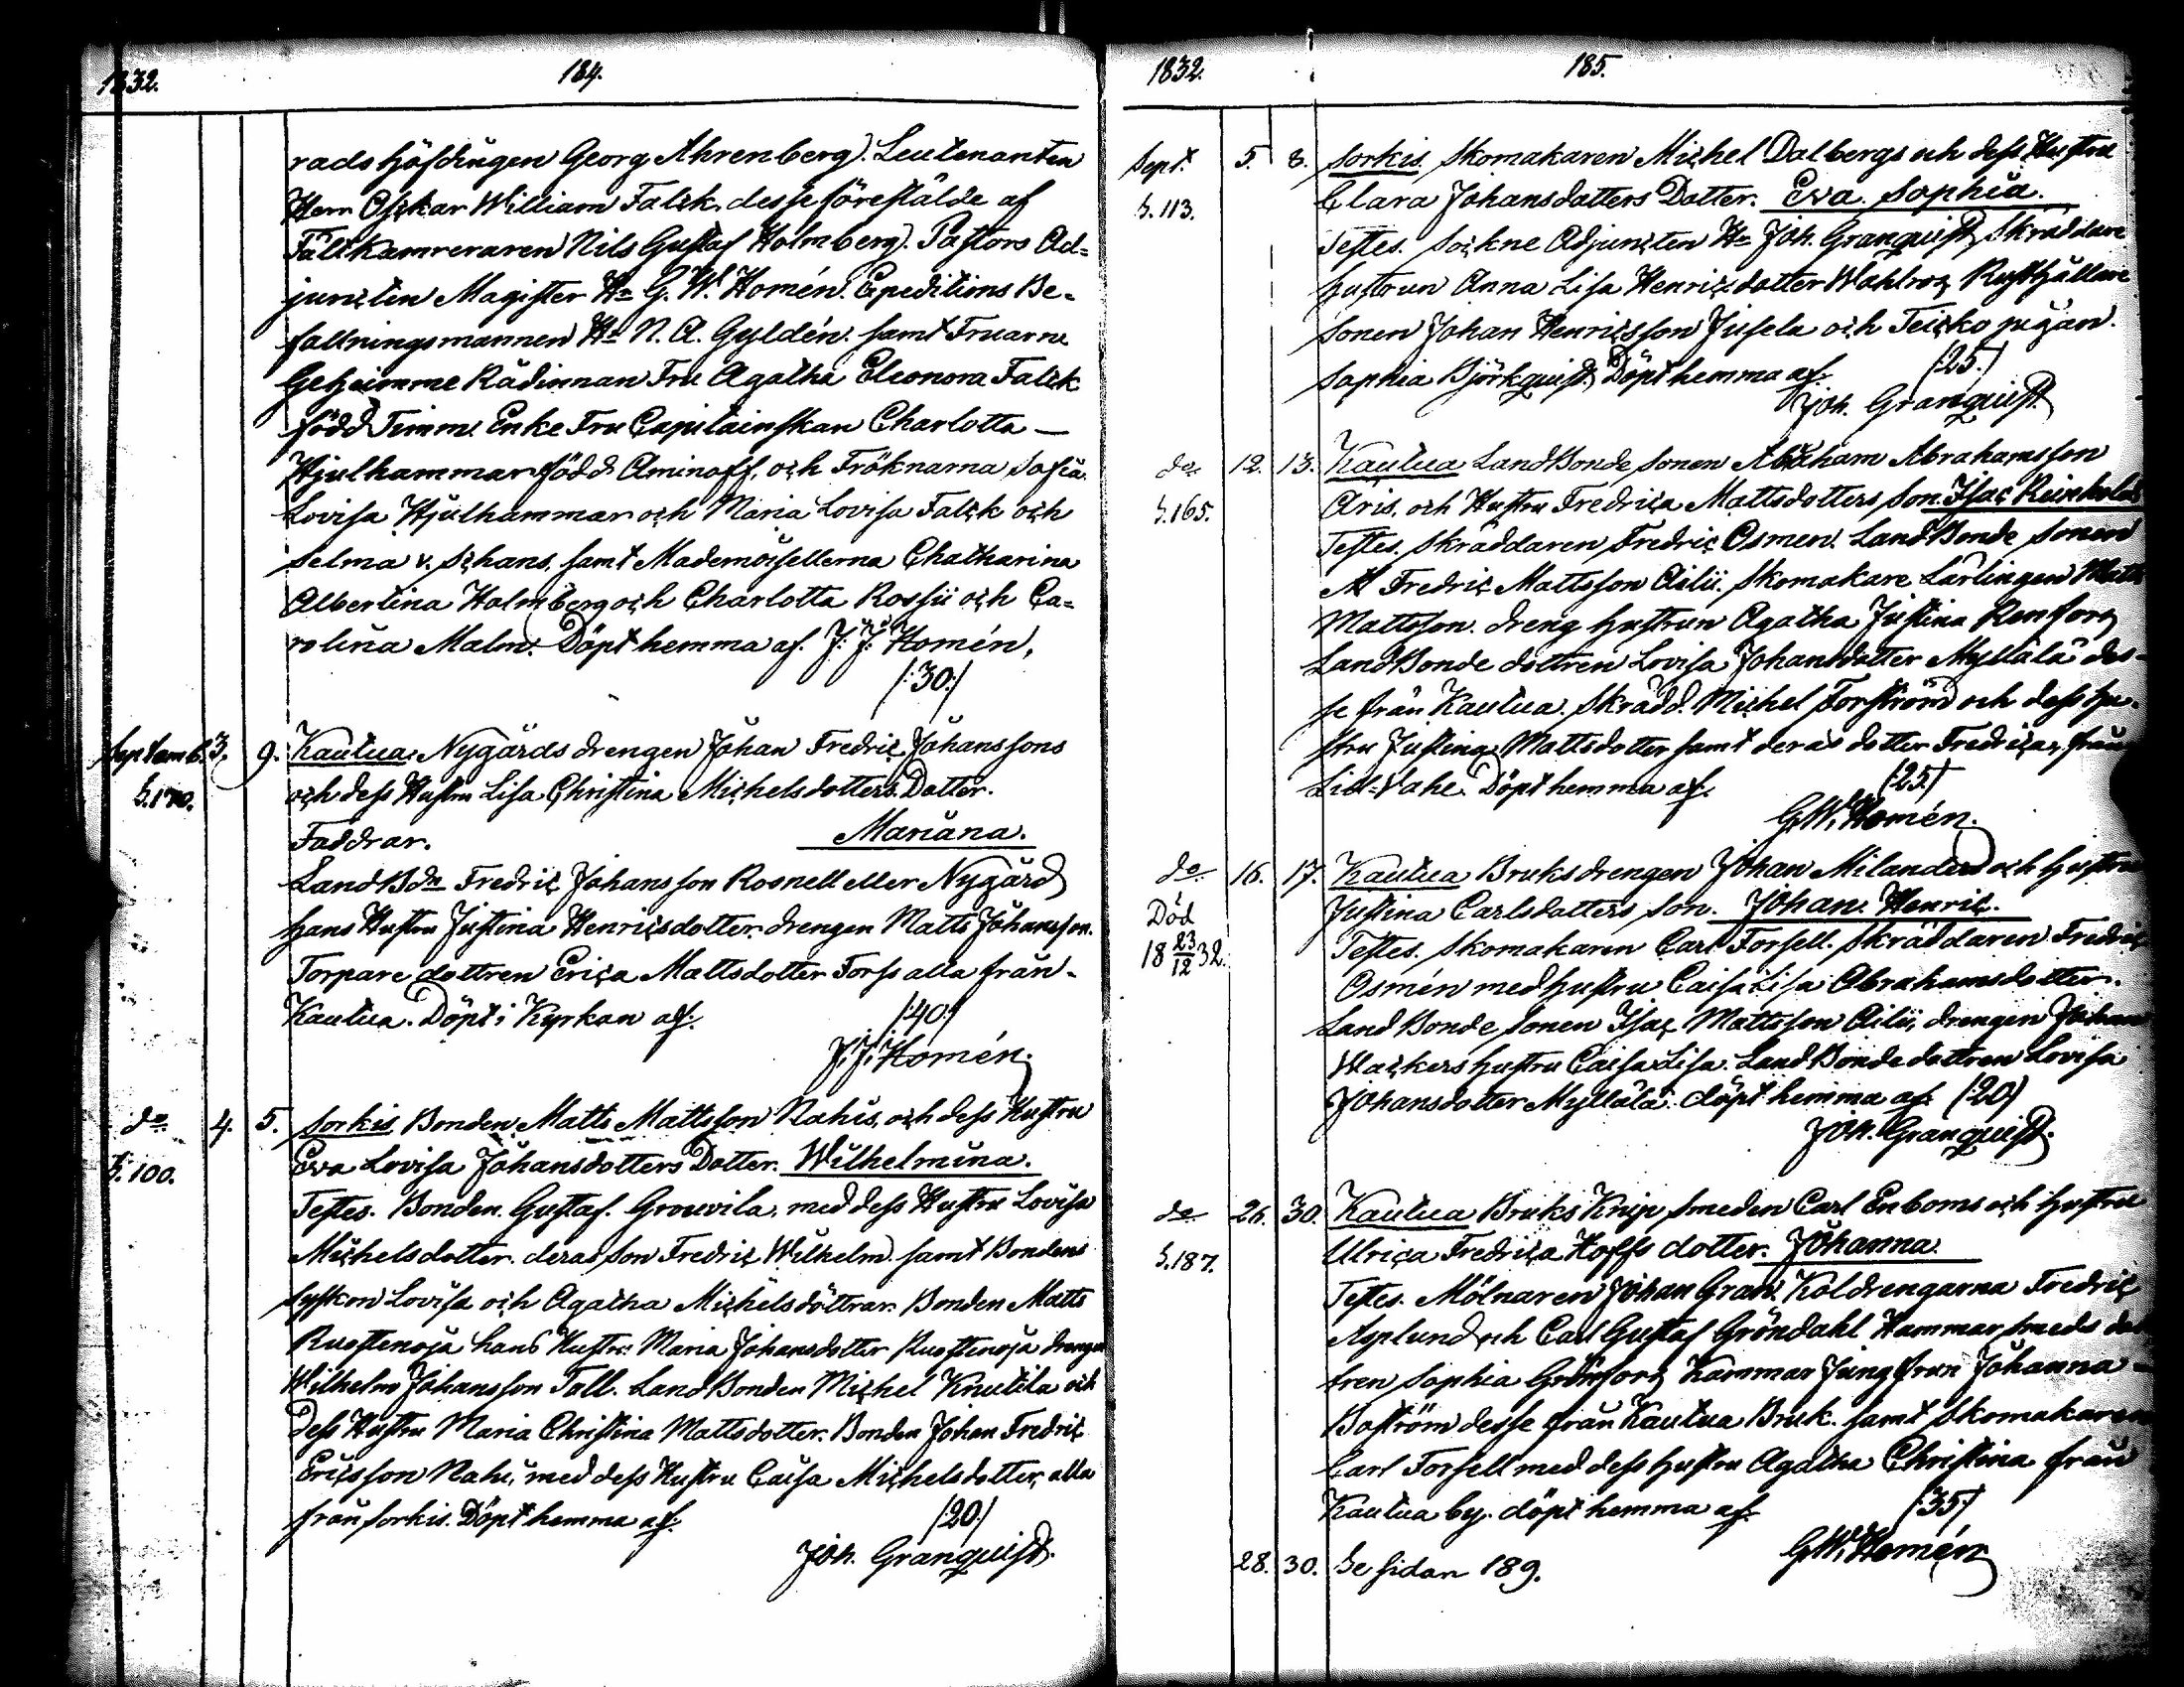 1832. 184.
rads Höfdingen Georg Ahrenberg). Leutenanten
Herr Osçkar William Falçk desse förestälde af
Fältkamreraren Nils Gustaf Holmberg). Pastors Ad=
junçten Magister Hr G. W. Homén. Expeditions Be=
fallningsmannen Hr N. A. Gyldén. samt Fruarne
Geheimme Rådinnan Fru Agatha Eleonora Falçk
född Timm. Enke Fru Capitainskan Charlotta —
Hjulhammar född Aminoff, och Fröknarna Sofia
Lovisa Hjulhammar och Maria Lovisa Falçk och
Selma v. Sçhans, samt Mademoisellerna Chatharina
Albertina Holmberg och Charlotta Rossii och Ca=
rolina Malm. Döpt hemma af. J: J: Homén,
/:30:/
Septemb. 3. 9. Kautua. Nygårds drengen Johan Fredriç Johanssons
S.170. och dess Hustru Lisa Christina Michelsdotters Dotter.
Faddrar. Mariana.
LandBdn Fredriç Johansson Rosnell eller Nygård
hans Hustru Justina Henriçsdotter. drengen Matts Johansson.
Torpare dottren Eriça Mattsdotter Forss alla från
Kautua. Döpt i Kyrkan af. /:40:/
J. J. Homén.
do 4. 5. Sorkis Bonden Matts Mattsson Nahis, och dess Hustru
S.100. Eva Lovisa Johansdotters Dotter. Wilhelmina.
Testes. Bonden Gustaf Grouvila, med dess Hustru Lovisa
Michelsdotter. deras son Fredriç Wilhelm. samt Bondens
syskon Lovisa och Agatha Michelsdöttrar. Bonden Matts
Ruostenoja hans Hustru Maria Johansdotter Ruostenoja drengen
Wilhelm Johansson Tall. LandBonden Michel Knutila och
Dess Hustru Maria Christina Mattsdotter. Bonden Johan Fredriç
Ericsson Nahi, med dess Hustru Caisa Michelsdotter, alla
från Sorkis. Döpt hemma af. /:20:/
Joh. Granquist.
1832. 185.
Sept. 5. 8. Sorkis. Skomakaren Michel Dalbergs och dess Hustru
S.113. Clara Johansdotters Dotter. Eva Sophia.
Testes. Soçkne Adjunçten Hr Joh. Granquist, Skräddare
hustrun Anna Lisa Henriçsdotter Wahlroos, Rusthållare
Sonen Johan Henriçsson Jusela och Teiçko pigan
Sophia Björkquist, Döpt hemma af. /:25:/
Joh. Granquist.
do 12. 13. Kautua LandBonde sonen Abraham Abrahamsson
S.165. Aris, och Hustru Fredriça Mattsdotters son Isaç Reinhold
Testes. Skräddaren Fredriç Osmen. LandBonde sonen
M Fredriç Mattsson Ailii. Skomakare Lärlingen Matts
Mattsson. dreng hustrun Agatha Justina Renfors,
LandBonde dottren Lovisa Johansdotter Myllälä des-
se från Kautua. Skrädd. Michel Forsström och dess hu-
stru Justina Mattsdotter samt deras dotter Fredriça, från
Döpt hemma af. /:25:/
G. W. Homén.
do 16. 17. Kautua Bruks drengen Johan Milanders och hustru
Död Justina Carlsdotters son. Johan Henriç.
18 23/12 32. Testes. Skomakaren Carl Forsell. Skräddaren Fredriç
Osmén med hustru Caisa Lisa Abrahamsdotter.
LandBonde sonen Isaç Mattsson Ailii, drengen Johan
Waçkers hustru Caisa Lisa. LandBonde dottren Lovisa
Johansdotter Myllälä. döpt hemma af. /:20/
Joh. Granquist.
do 26. 30. Kautua Bruks Knip smeden Carl Enboms och hustru
S.187. Ulriça Fredriça Hoffs dotter. Johanna.
Testes. Mölnaren Johan Gran. Koldrengarna Fredriç
Asplund och Carl Gustaf Gröndahl Hammar smeds dot
tren Sophia Grönfors, Kammar Jungfrun Johanna —
Boström desse från Kautua Bruk. samt Skomakaren
Carl Forsell med dess hustru Agatha Christina från
Kautua by. döpt hemma af. /:35:/
G. W. Homén
28. 30. Se sidan 189.